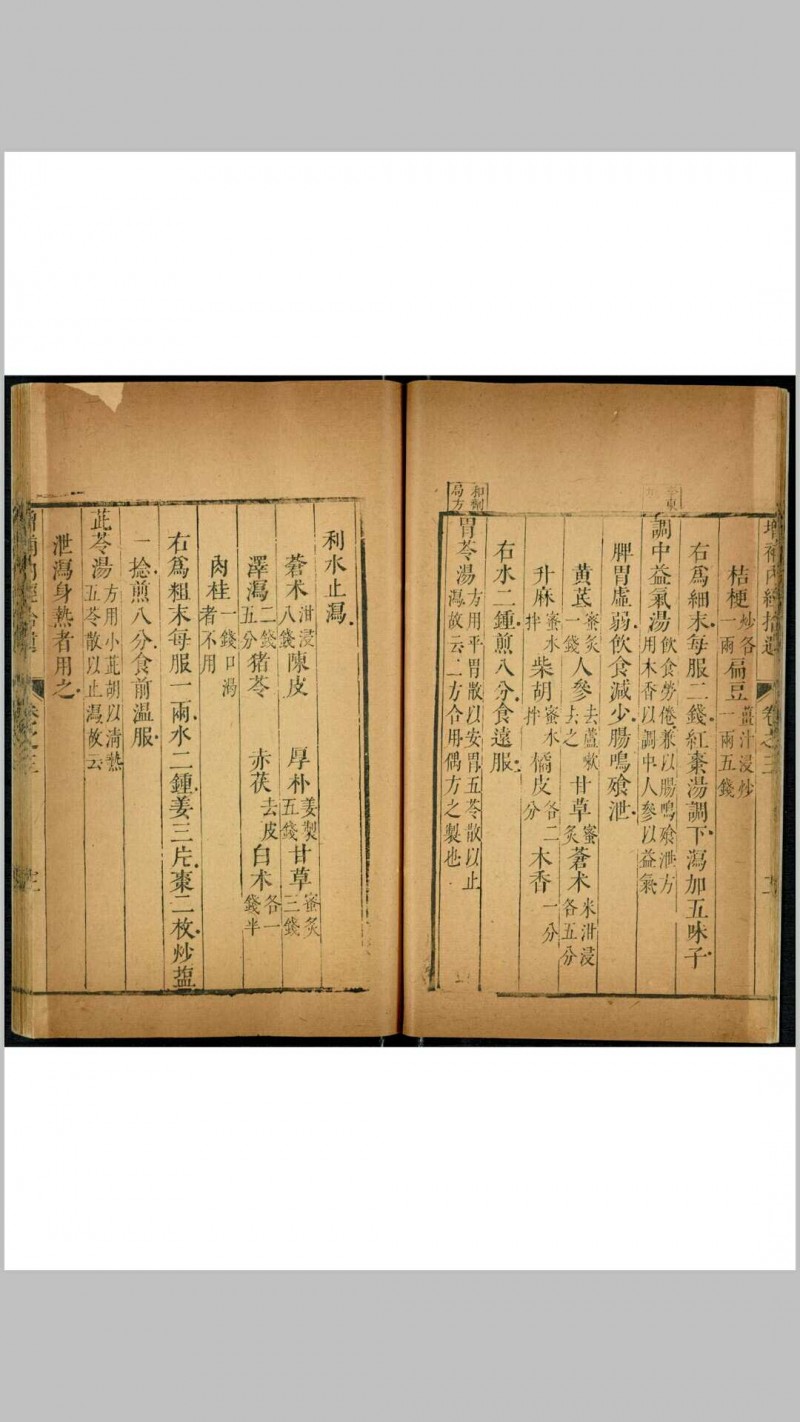 增補內經拾遺 卷之三
桔梗炒各一兩扁豆薑汁浸炒一兩五錢
右爲細末每服二錢紅棗湯調下瀉加五味子
調中益氣湯飲食勞倦兼以腸鳴飱泄方用木香以調中人參以益氣
脾胃虛弱飲食減少腸鳴飱泄
黃芪蜜炙一錢人參去蘆嗽去之甘草蜜炙蒼术米泔浸各五分
升麻蜜水拌柴胡蜜水拌橘皮各二分木香一分
右水二鍾煎八分食遠服
和劑局方
胃苓湯方用平胃散以安胃五苓散以止瀉故云二方合用偶方之製也
利水止瀉
蒼术泔浸八錢陳皮 厚朴姜製五錢甘草蜜炙三錢
澤瀉二錢五分猪苓 赤茯去皮白术各一錢半
肉桂一錢口渴者不用
右爲粗末每服一兩水二鍾姜三片棗二枚炒塩
一捻煎八分食前温服
茈苓湯方用小茈胡以清熱五苓散以止瀉故云
泄瀉身熱者用之